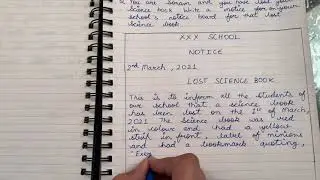 You are Sonam and you have lost your
science book. Write a notice for your
school's notice board for that lost
science book.
XXX SCHOOL
NOTICE
2nd March, 2021
LOST SCIENCE BOOK
This is to inform all the students of
our school that a science book
has been lost on the 1st of March,
2021. The science book was red
in colour and had a yellow
in front, label of minions
and had a bookmark quoting,